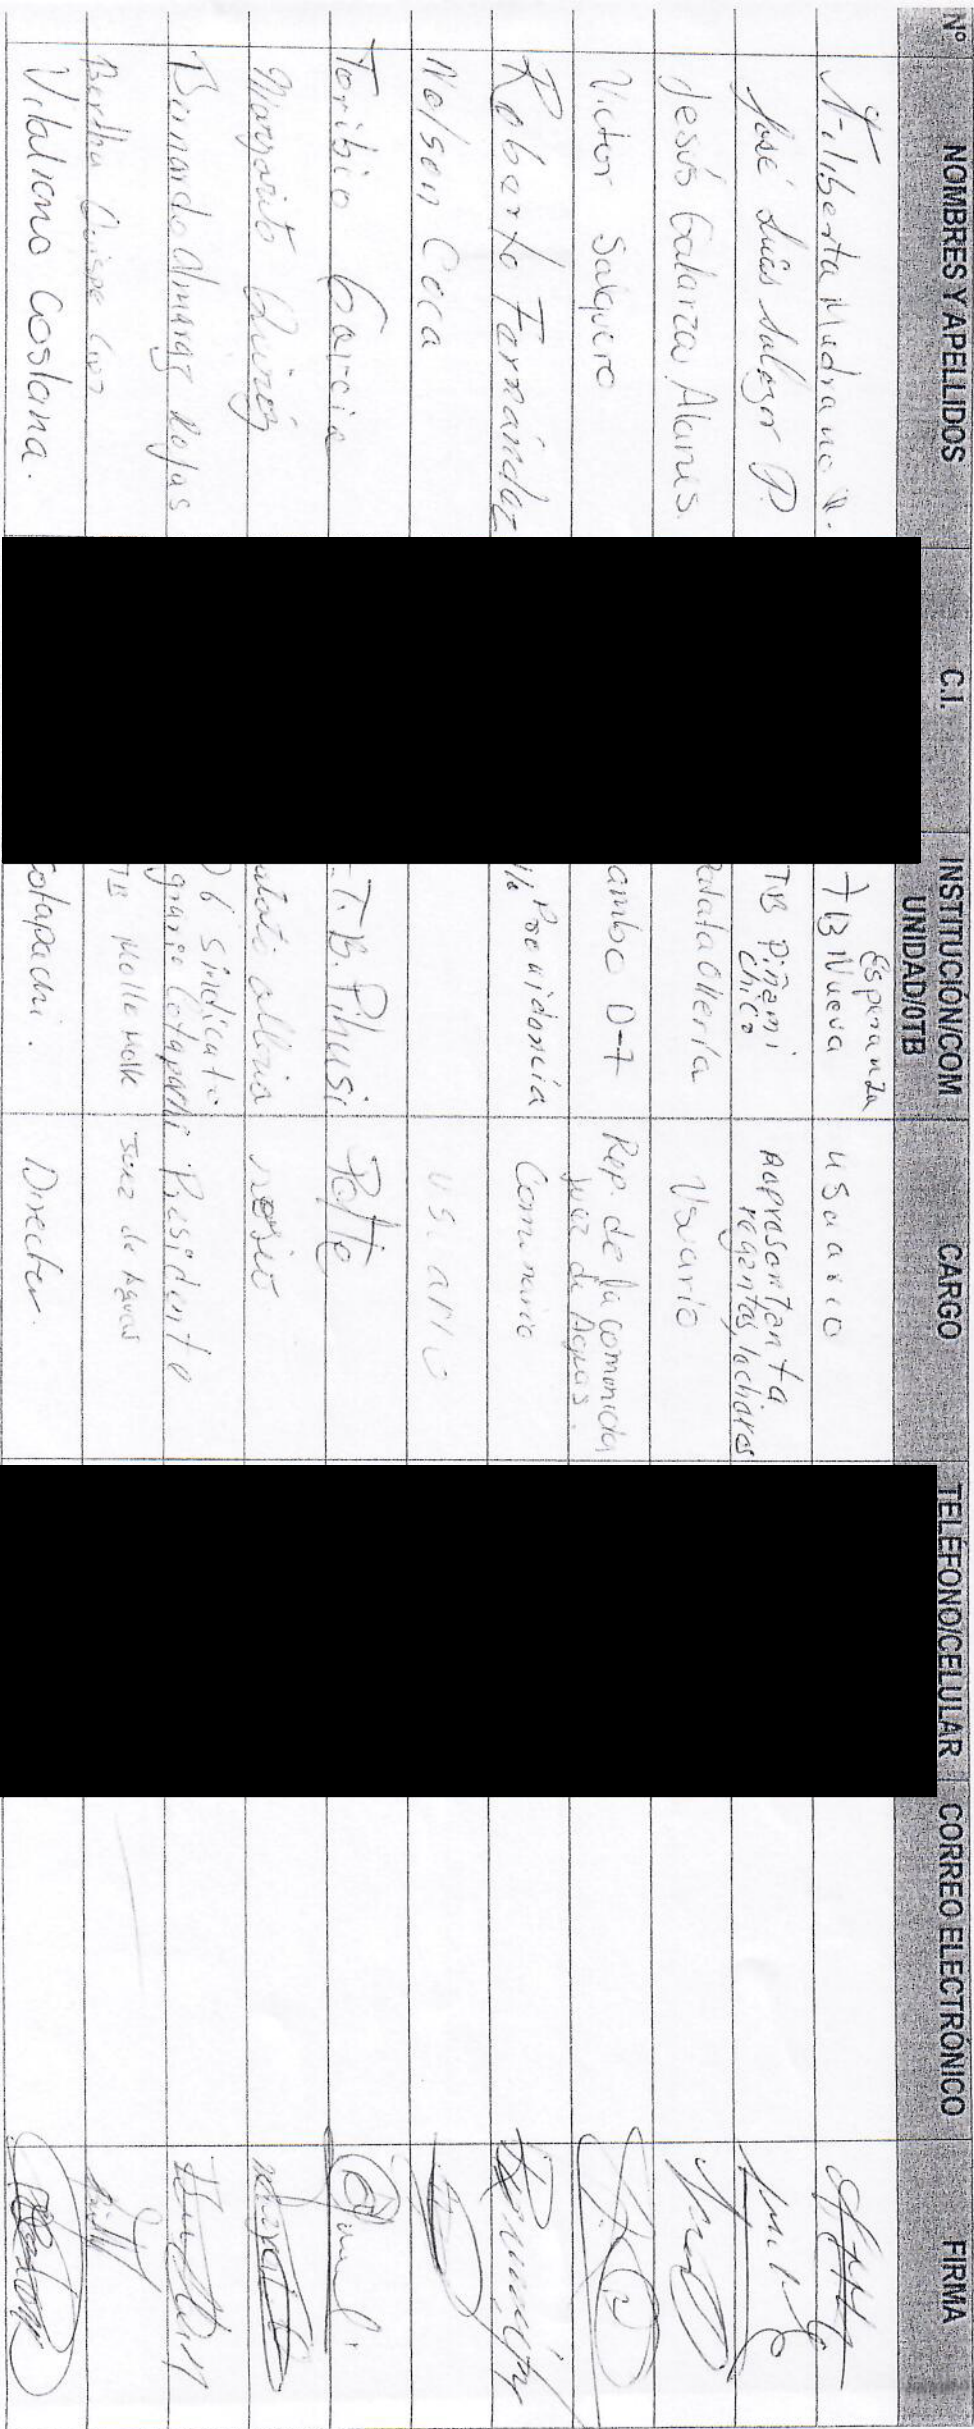 Nº NOMBRES Y APELLIDOS C.I. INSTITUCIÓN/COM UNIDAD/OTB CARGO TELÉFONO/CELULAR CORREO ELECTRÓNICO FIRMA
Filiberta Medrano TB Nueva Esperanza usuario
José Luis Salazar P. TB Piñami Chico Representante regantes lecheros
Jesús Galarza Alanes. Usuario
Victor Salguero ambo D-7 Rep. de la comunidad juez de Aguas.
Roberto Fernández Providencia Comunario
Nelson Coca usuario
Toribio Garcia .T.B. Pihusi
Margarito Quiroz
Bernardo Almaraz Rojas D6 Sindicato grario Cotapachi Presidente
Bertha Quispe TB Molle Molle Juez de Aguas
Vitaliano Costana. cotapachi. Director.